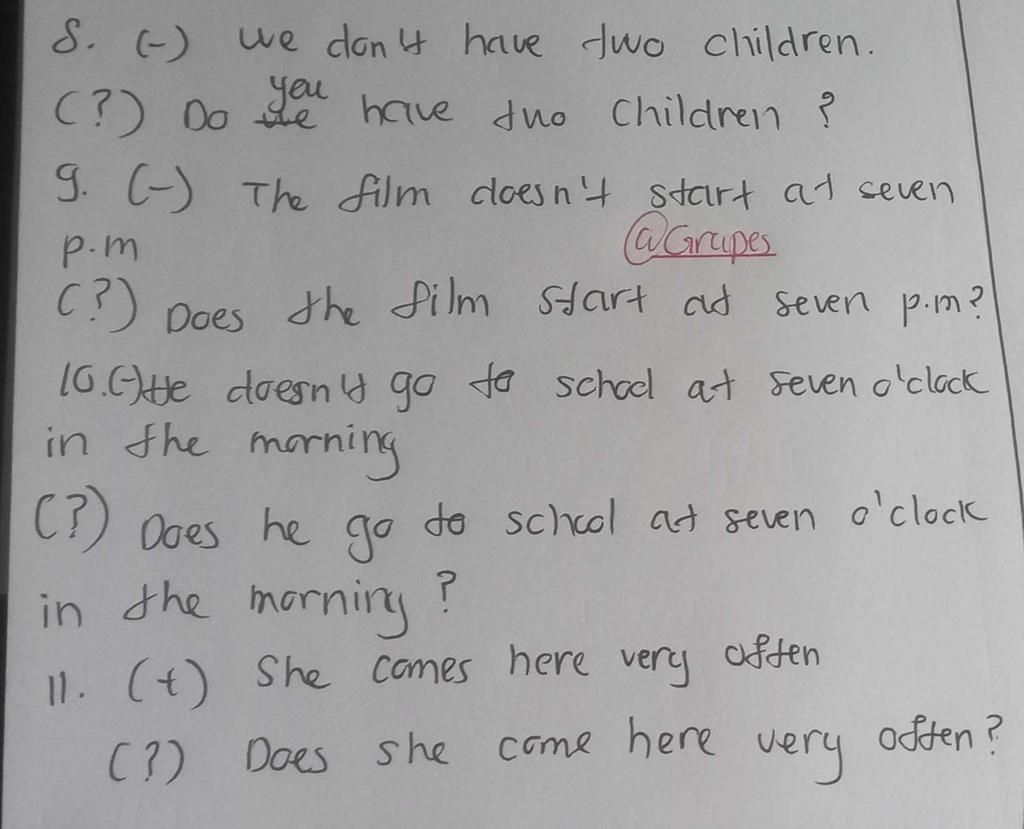 8. (-) We don't have two children.
(?) Do you have two children ?
9. (-) The film doesn't start at seven
p.m
@Grapes
(?) Does the film start at seven p.m?
10.(-)He doesn't go to school at seven o'clock
in the morning
(?) Does he go to school at seven o'clock
in the morning ?
11. (+) She comes here very often
(?) Does she come here very often?